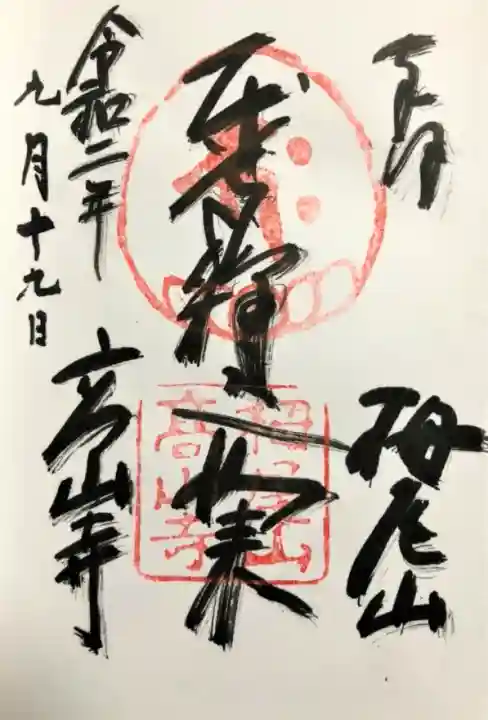 奉拝
栂尾山
如来
令和二年
九月十九日
高山寺
栂尾山
高山寺